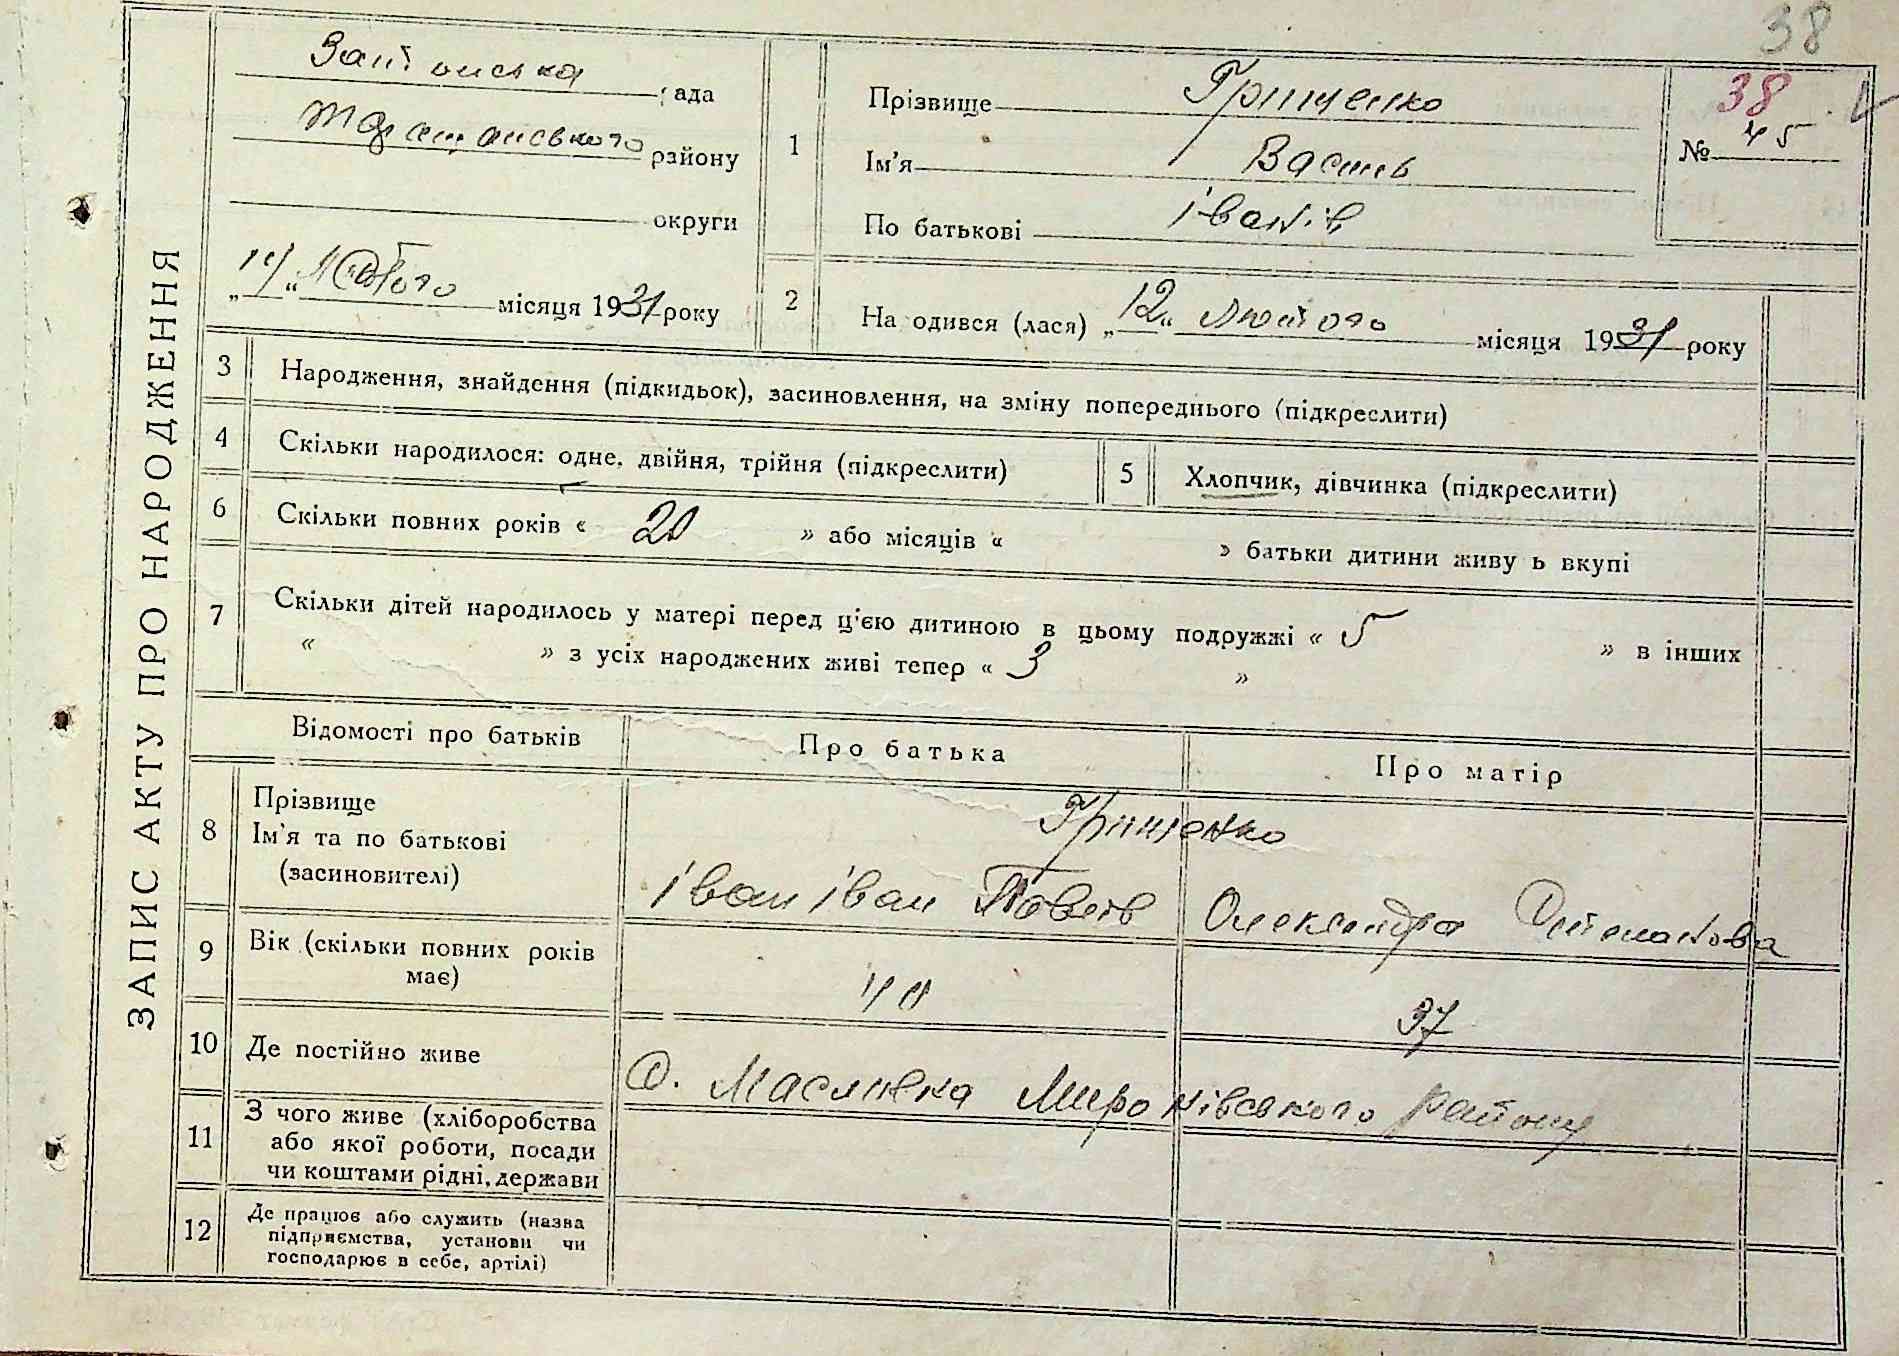 38
ЗАПИС АКТУ ПРО НАРОДЖЕННЯ
рада
району
округи
місяця 1931 року
1
Прізвище Грищенко
Ім'я Василь
По батькові Іванів
38
№ 45
2
На одився (лася) „12“ Лютого місяця 1931 року
3 Народження, знайдення (підкидьок), засиновлення, на зміну попереднього (підкреслити)
4 Скільки народилося: одне, двійня, трійня (підкреслити)
5 Хлопчик, дівчинка (підкреслити)
6 Скільки повних років « 20 » або місяців « » батьки дитини живу ь вкупі
7 Скільки дітей народилось у матері перед ц'єю дитиною в цьому подружжі « 5 » в інших
« » з усіх народжених живі тепер « 3 »
Відомості про батьків
Про батька
Про матір
8
Прізвище
Ім'я та по батькові
(засиновителі)
Грищенко
Іван Іван
Олександра
9
Вік (скільки повних років
має)
40
37
10 Де постійно живе
С. Маслівка Миронівського району
11
З чого живе (хліборобства
або якої роботи, посади
чи коштами рідні, держави
12
Де працює або служить (назва
підприємства, установи чи
господарює в себе, артілі)